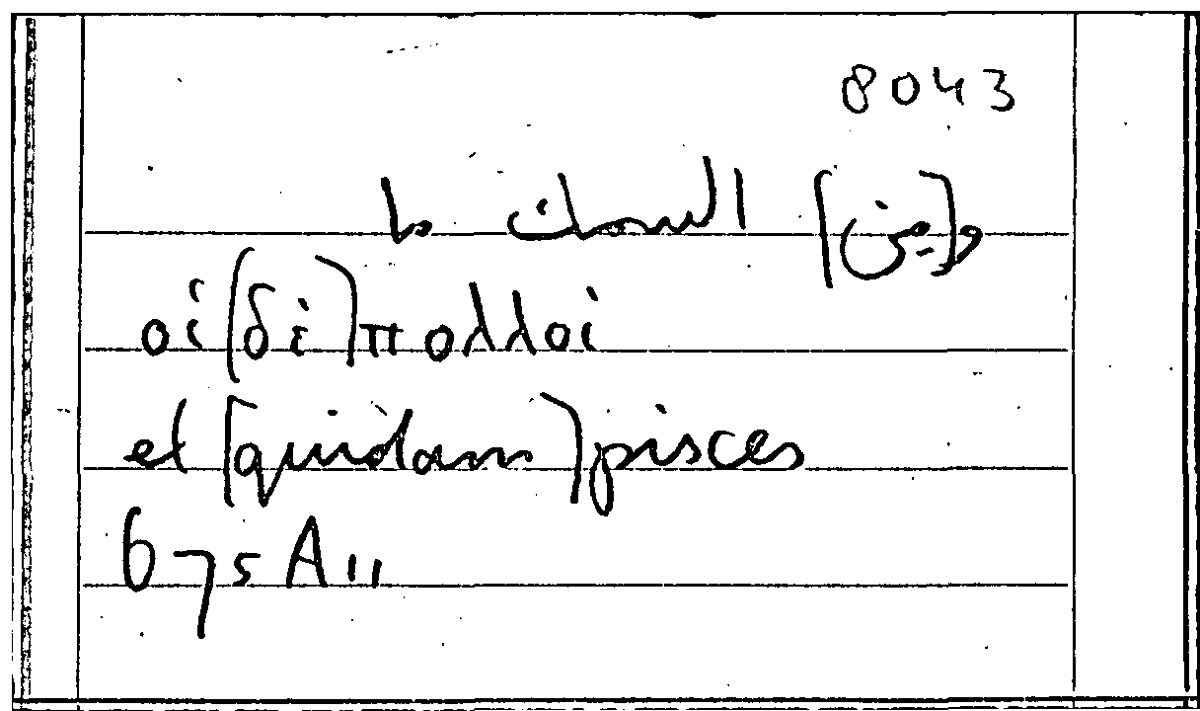 8043
و[من] السمك ما
οἱ (δὲ) πολλοί
et [quidam] pisces
675 A 11